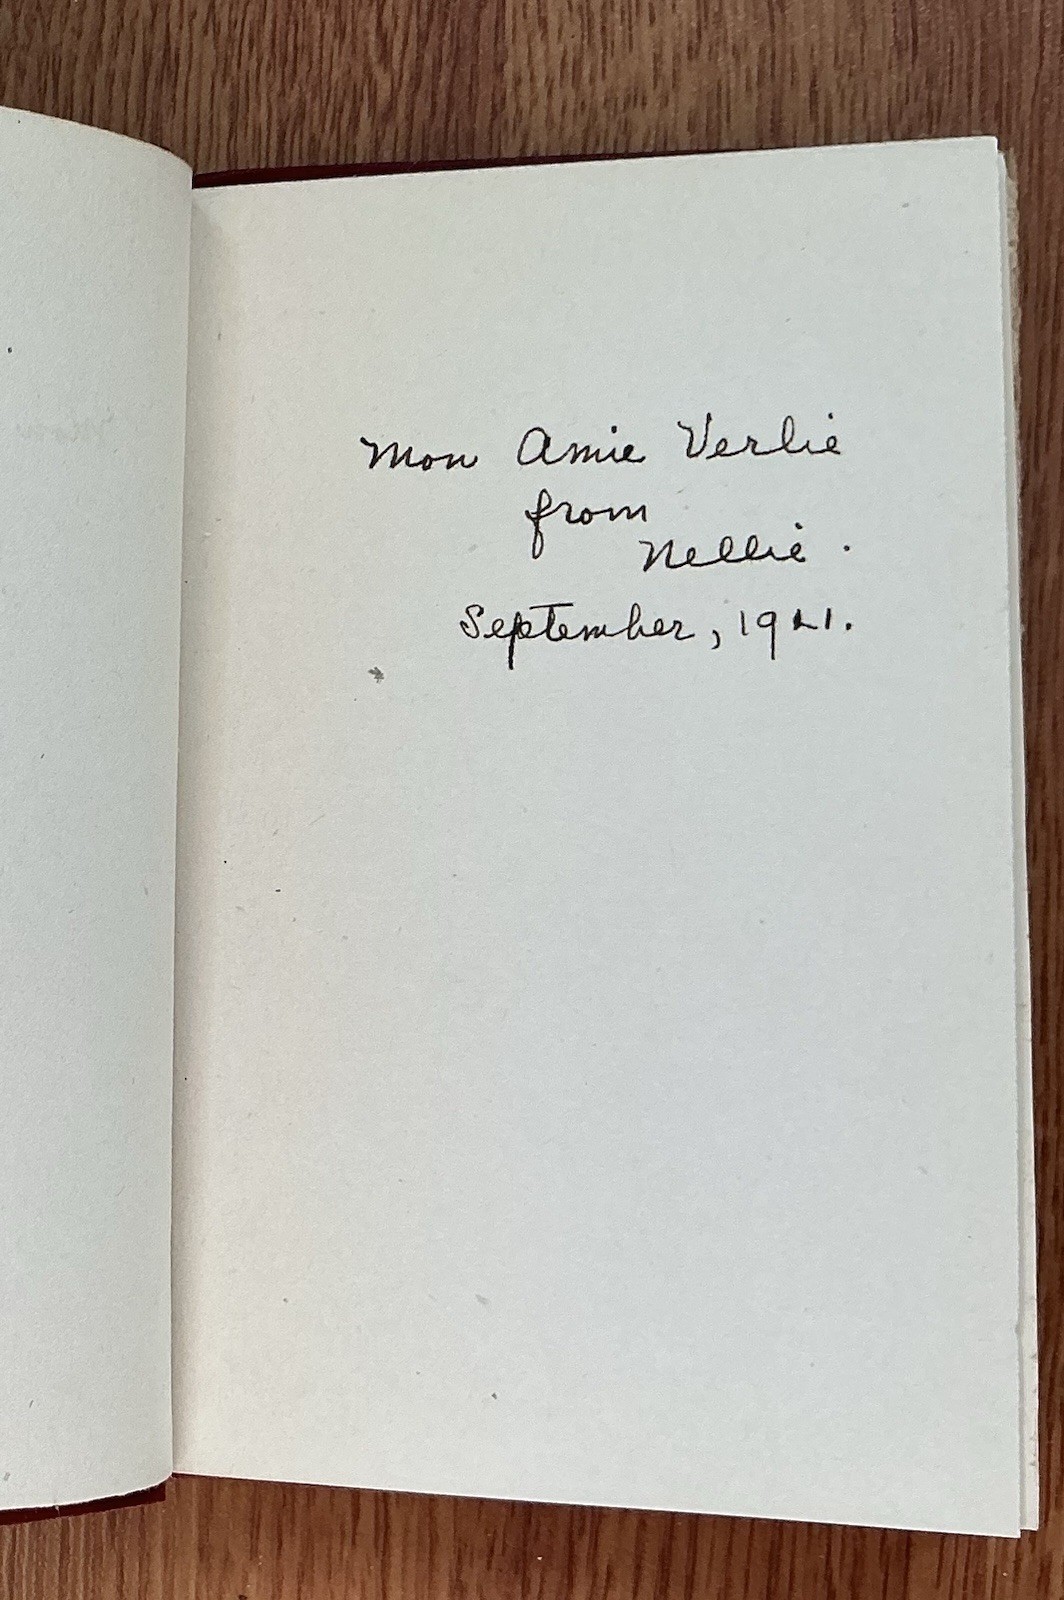 Mon Amie Verlie
from
Nellie.
September, 1921.